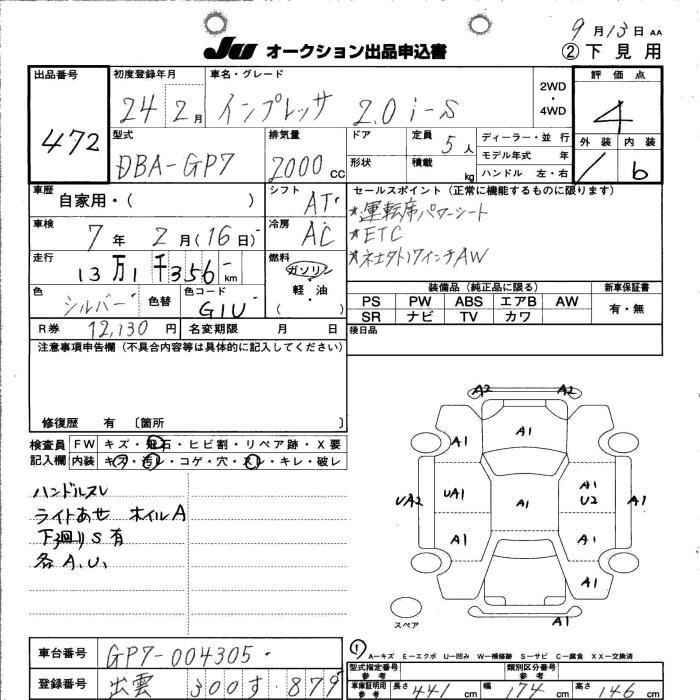 9月13日 AA
JU オークション出品申込書
② 下見用
出品番号 初度登録年月 車名・グレード 2WD・4WD 評価点
472 24 2月 インプレッサ 2.0i-S 4
型式 排気量 ドア 定員 5人 ディーラー・並行 外装 内装
DBA-GP7 2000cc 形状 積載 kg モデル年式 年 b
ハンドル 左・右
車歴 シフト セールスポイント(正常に機能するものに限ります)
自家用・( ) AT
★運転席パワーシート
車検 冷房
7年 2月(16日) AC
★ETC
走行 燃料
13万1千356km ガソリン・軽・油 ( )
17インチAW
色 色替 色コード
シルバー G1U
装備品(純正品に限る) 新車保証書
PS PW ABS エアB AW 有・無
SR ナビ TV カワ
R券 12,130円 名変期限 月 日
後日品
注意事項申告欄(不具合内容等は具体的に記入してください)
修復歴 有 〔箇所 〕
検査員 FW キズ・飛石・ヒビ割・リペア跡・X要
記入欄 内装 キズ・汚レ・コゲ・穴・スレ・キレ・破レ
ハンドルスレ
ライトあせ ホイルA
下廻りS有
各A.U.
A2 A2
A1 A1 A1
UA2 UA1 A1 A1 U2 A1
A1 A1
A1
A1
スペア
① A-キズ E-エクボ U-凹み W-補修跡 S-サビ C-腐食 XX-交換済
車台番号 GP7-004305
型式指定番号 参考 類別区分番号 参考
登録番号 出雲 300す879
車庫証明用 参考 長さ 441cm 幅 174cm 高さ 146cm